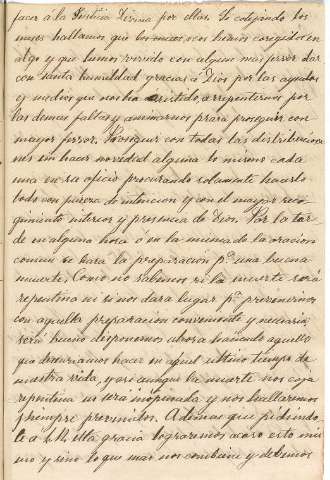 facer á la Justicia Divina por ellas. Si cotejando los
meses hallamos que los unos nos hemos corregido en
algo y que hemos vivido con alguno mas fervor dar
con santa humildad gracias á Dios por las ayudas
y medios que nos ha asistido, arrepentirnos por
las demas faltas y animarnos para proseguir con
mayor fervor. Proseguir con todas las distribucio
nes sin hacer novedad alguna lo mismo cada
una en su oficio procurando solamente hacerlo
todo con pureza de intencion y con el mayor reco
gimiento interior y presencia de Dios. Por la tar
de en alguna hora ó en la misma de la oracion
comun se hará la preparacion pª una buena
muerte. Como no sabemos si la muerte será
repentina ni si nos dara lugar pª prevenirnos
con aquella preparacion conveniente y necesaria
será bueno disponernos ahora haciendo aquello
que desearíamos hacer en aquel ultimo tiempo de
nuestra vida, y asi aunque la muerte nos coja
repentina no será inopinada y nos hallaremos
siempre prevenidos. Ademas que pidiendo
le á S.M. esta gracia lograremos acaso esto mis
mo y sino lo que mas nos combiene y debemos